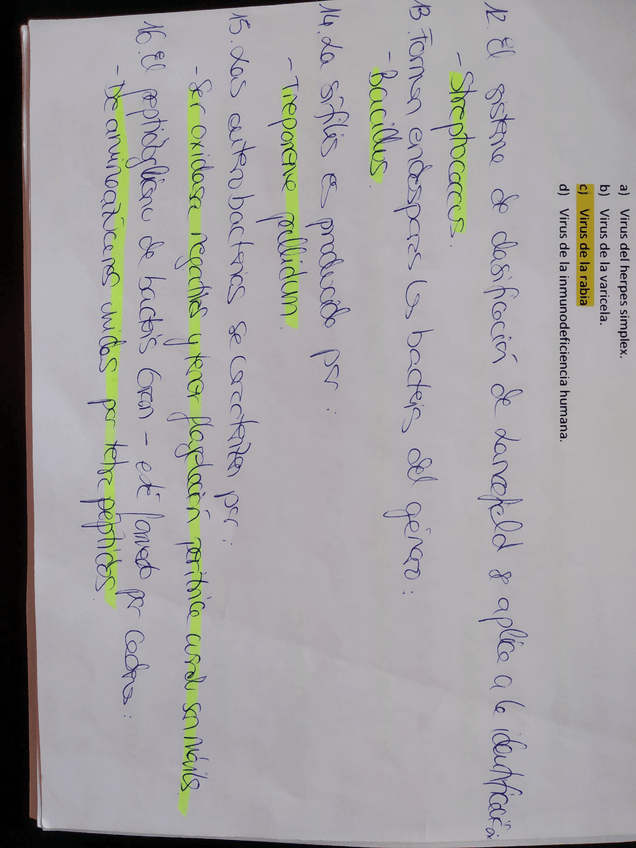 a) Virus del herpes simplex.
b) Virus de la varicela.
c) Virus de la rabia
d) Virus de la inmunodeficiencia humana.
12. El sistema de clasificación de Lancefield se aplica a la identificación
- Streptococcus.
13. Forman endosporas las bacterias del género:
- Bacillus.
14. La sífilis es producida por:
- Treponema pallidum.
15. Las enterobacterias se caracterizan por:
- Ser oxidasa negativas y tener flagelación peritrica cuando son móviles.
16. El peptidoglicano de bacterias Gram - esté formado por cadenas:
- De aminoazúcares unidas por tetrapéptidos.